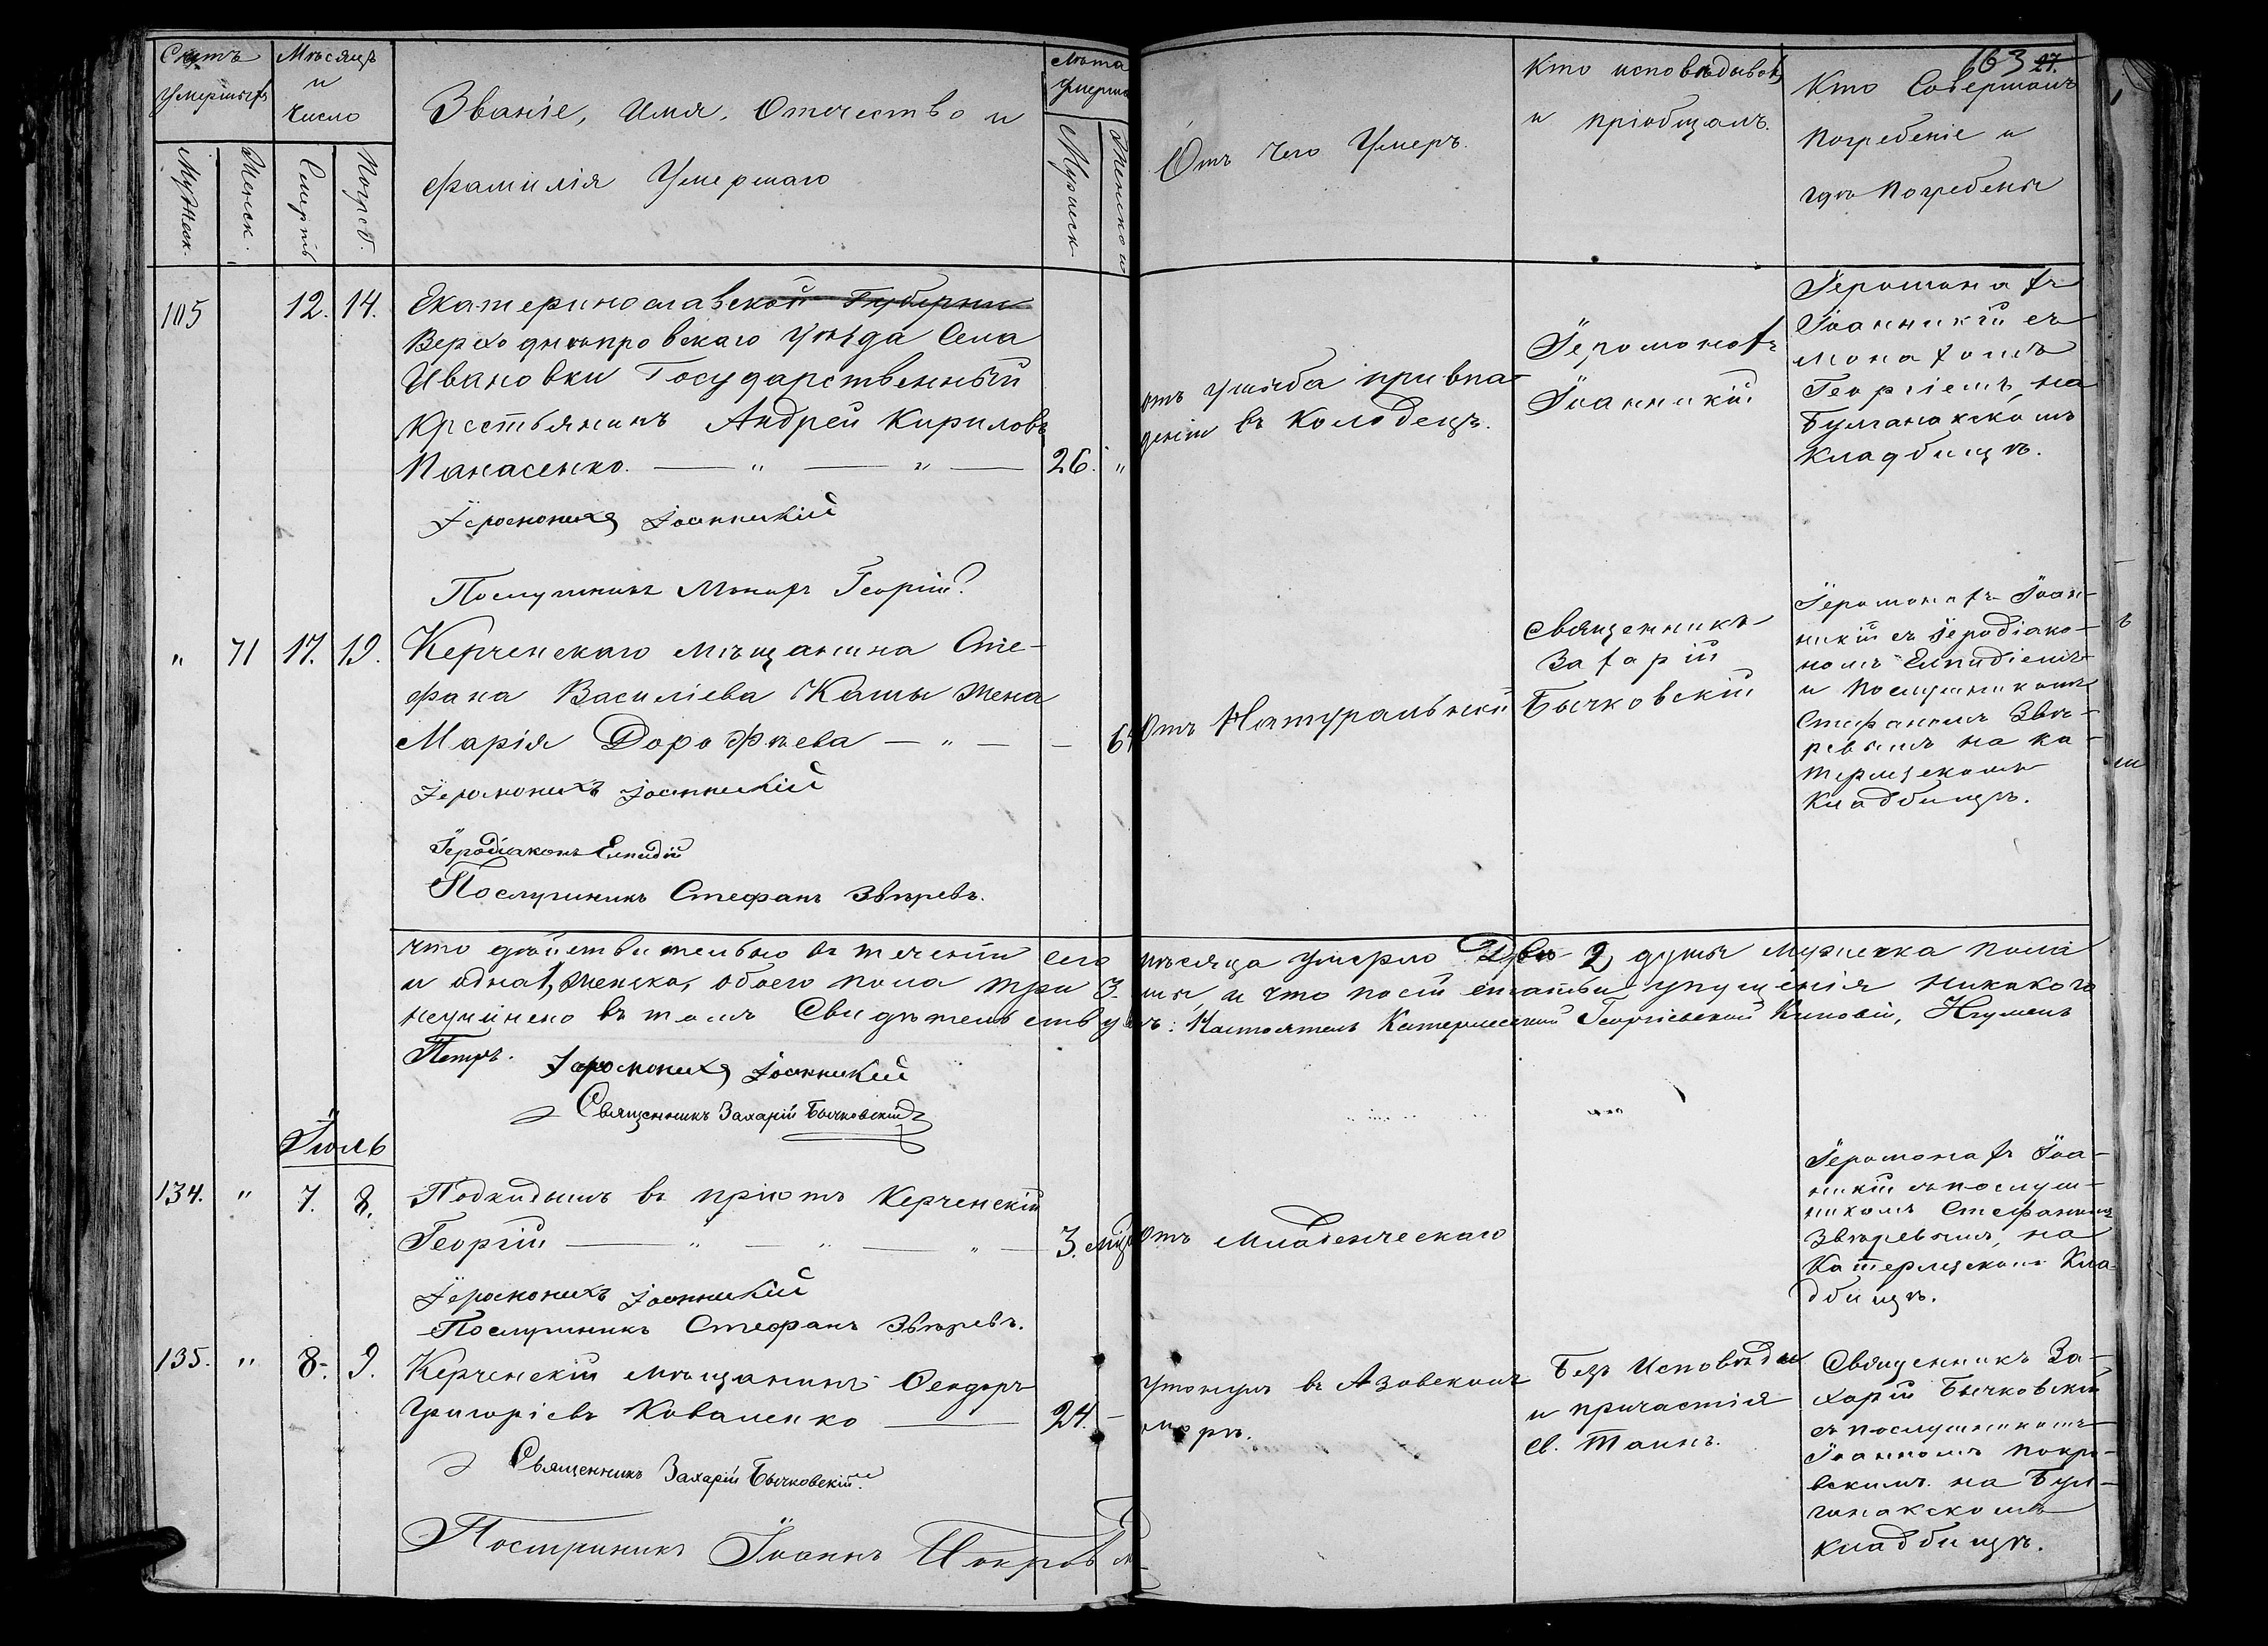 163 27.
Счетъ умершихъ
Мѣсяцъ и число
Званіе, Имя, Отчество и
фамилія Умершаго
Лѣта умерша
Отъ чего Умеръ.
Кто исповѣдывалъ
и пріобщалъ.
Кто Совершалъ
погребеніе и
гдѣ Погребены
Мужеск.
Женск.
Смерть
Погреб.
Мужеск
Женско
105 12. 14.
Екатеринославской Губерніи
Верходнѣпровскаго уѣзда Села
Ивановки Государственный
Крестьянинъ Андрей Кириловъ
Панасенко. — " — " — 26. "
отъ ушиба при впа-
деніи въ Колодецъ.
Іеромонахъ
Іоанникій
Іеромонахъ
Іоанникій съ
монахомъ
Георгіемъ, на
Булганакскомъ
Кладбищѣ.
Іеромонахъ Іоанникій
Послушникъ Монахъ Георгій.
" 71 17. 19.
Керченскаго мѣщанина Сте-
фана Василіева Каты жена
Марія Дорофѣева — " — —
Отъ Натуральной
Священникъ
Захарій
Бычковскій
Іеромонахъ Іоан-
никій съ Іеродіако-
номъ Елпидіемъ
и Послушникомъ
Стефаномъ Звѣ-
ревымъ на ка-
терлезскомъ
Кладбищѣ.
Іеромонахъ Іоанникій
Іеродіаконъ Елпидій
Послушникъ Стефанъ Звѣревъ.
что дѣйствительно въ теченіи сего мѣсяца умерло Двѣ 2, души мужеска пола
и одна 1, женска, обоего пола три 3. и что посей статьи упущенія никакого
неучинено въ томъ Свидѣтельствуемъ: Настоятель Катерлесской Георгіевской Киновіи, Игуменъ
Петръ.
Іеромонахъ Іоанникій
Священникъ Захарій Бычковскій
Іюль
134. " 7. 8.
Подкидышъ въ пріютъ Керченскій
Георгій — " — " — " — 3. мѣс.
Отъ младенческаго
Іеромонахъ Іоа-
никій съ послуш-
никомъ Стефаномъ
Звѣревымъ, на
Катерлезскомъ Кла-
дбищѣ.
Іеромонахъ Іоанникій
Послушникъ Стефанъ Звѣревъ.
135. " 8. 9.
Керченскій мѣщанинъ Феодоръ
Григоріевъ Коваленко — 24. –
утонулъ въ Азовскомъ
морѣ.
Безъ Исповѣди
и причастія
Св. Таинъ.
Священникъ За-
харій Бычковскій
съ послушникомъ
Іоанномъ Покро-
вскимъ. на Бул-
ганакскомъ
кладбищѣ.
Священникъ Захарій Бычковскій.
Послушникъ Іоаннъ Покров